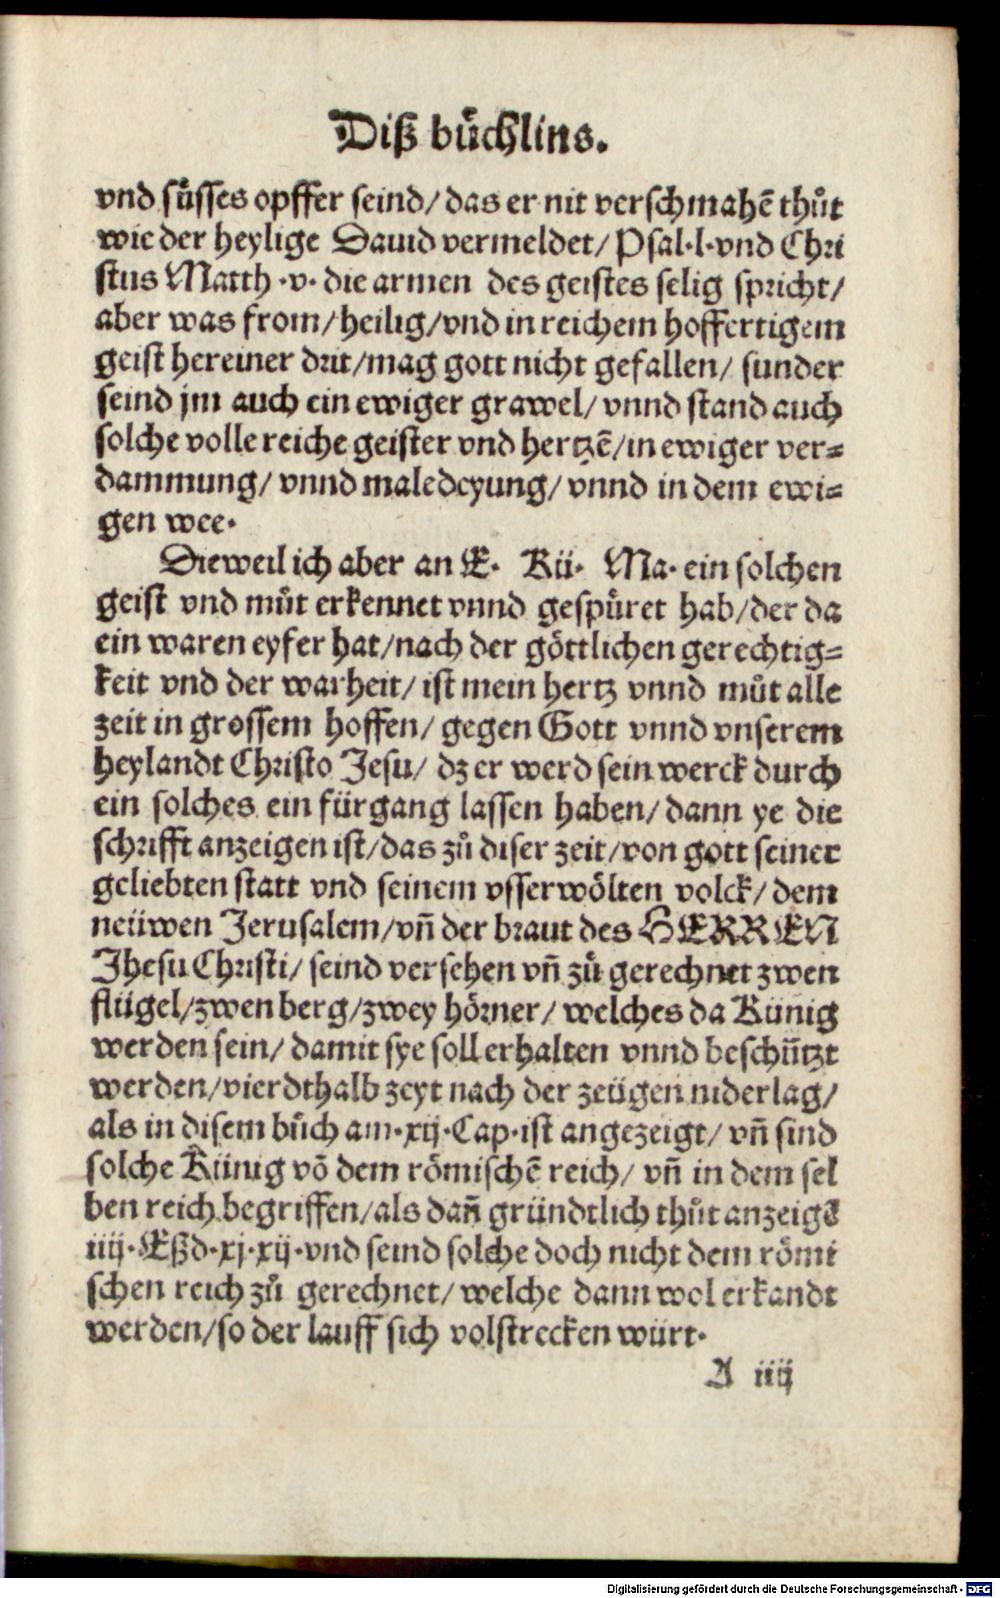 Diß bůchlins.
vnd sůsses opffer seind/ das er nit verschmahē thůt
wie der heylige Dauid vermeldet/ Psal·l·vnd Chri
stus Matth ·v· die armen des geistes selig spricht/
aber was from/ heilig/ vnd in reichem hoffertigem
geist hereiner drit/ mag gott nicht gefallen/ sunder
seind jm auch ein ewiger grawel/ vnnd stand auch
solche volle reiche geister vnd hertzē/ in ewiger ver⸗
dammung/ vnnd maledeyung/ vnnd in dem ewi⸗
gen wee·
Dieweil ich aber an E· Kü· Ma· ein solchen
geist vnd můt erkennet vnnd gespůret hab/ der da
ein waren eyfer hat/ nach der göttlichen gerechtig⸗
keit vnd der warheit/ ist mein hertz vnnd můt alle
zeit in grossem hoffen/ gegen Gott vnnd vnserem
heylandt Christo Jesu/ dz er werd sein werck durch
ein solches ein fürgang lassen haben/ dann ye die
schrifft anzeigen ist/ das zů diser zeit/ von gott seiner
geliebten statt vnd seinem vsserwölten volck/ dem
neüwen Jerusalem/ vñ der braut des HERREN
Jhesu Christi/ seind versehen vñ zů gerechnet zwen
flügel/ zwen berg/ zwey hörner/ welches da Künig
werden sein/ damit sye soll erhalten vnnd beschützt
werden/ vierdthalb zeyt nach der zeügen niderlag/
als in disem bůch am·xij·Cap·ist angezeigt/ vñ sind
solche Künig vō dem römischē reich/ vñ in dem sel
ben reich begriffen/ als dañ gründtlich thůt anzeigē
iiij·Eßd·xj·xij·vnd seind solche doch nicht dem römi
schen reich zů gerechnet/ welche dann wol erkandt
werden/ so der lauff sich volstrecken würt·
A iiij
Digitalisierung gefördert durch die Deutsche Forschungsgemeinschaft - DFG